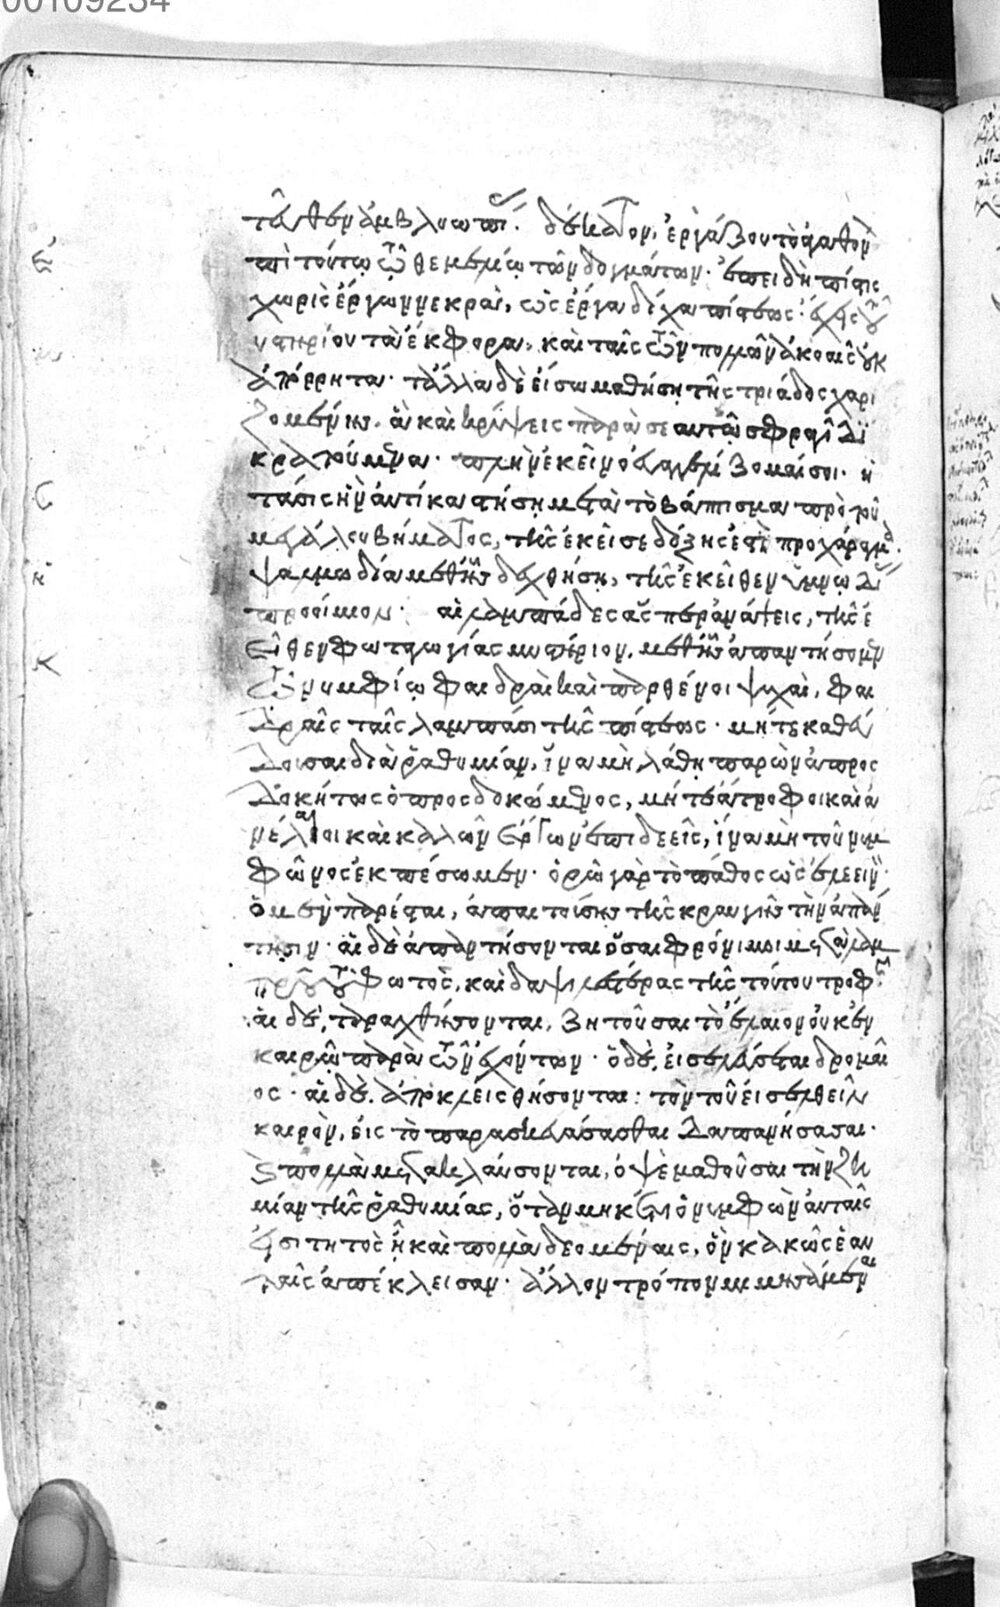 00109234
ταῦθεν ἀμβλυωπεῖ. δέκατον, ἐργάζου τὸ ἀγαθὸν
ἐπὶ τούτῳ τῷ θεμελίῳ τῶν δογμάτων. ἐπειδὴ πίστις
χωρὶς ἔργων νεκρά, ὡς ἔργα δίχα πίστεως. ἔχεις τοῦ
μυστηρίου τὰ ἔκφορα, καὶ ταῖς τῶν πολλῶν ἀκοαῖς οὐκ
ἀπόρρητα. τὰ ἄλλα δὲ εἴσω μαθήσῃ τῆς τριάδος χαρι
ζομένης. ἃ καὶ κρύψεις παρὰ σεαυτῷ σφραγῖδι
κρατούμενα. πλὴν ἐκεῖνο εὐαγγελίζομαί σοι. ἡ
στάσις ἣν αὐτίκα στήσῃ μετὰ τὸ βάπτισμα πρὸ τοῦ
μεγάλου βήματος, τῆς ἐκεῖσε δόξης ἐστὶ προχάραγμα.
ψαλμωδία μεθ' ἧς δεχθήσῃ, τῆς ἐκεῖθεν ὑμνωδίας
προοίμιον. αἱ λαμπάδες ἅσπερ ἀνάψεις, τῆς ἐ
κεῖθεν φωταγωγίας μυστήριον, μεθ' ἧς ἀπαντήσομεν
τῷ νυμφίῳ φαιδραὶ καὶ παρθένοι ψυχαί, φαι
δραῖς ταῖς λαμπάσι τῆς πίστεως. μήτε καθεύ
δουσαι διὰ ῥαθυμίαν, ἵνα μὴ λάθῃ παρὼν ἀπροσ
δοκήτως ὁ προσδοκώμενος, μήτε ἄτροφοι καὶ ἀ
νέλαιοι καὶ καλῶν ἔργων ἐπιδεεῖς, ἵνα μὴ τοῦ νυμ
φῶνος ἐκπέσωμεν. ὁρῶ γὰρ τὸ πάθος ὡς ἐλεεινόν.
ὁ μὲν παρέσται, ἀπαιτούσης τῆς κραυγῆς τὴν ἀπάν
τησιν. αἱ δὲ ἀπαντήσονται ὅσαι φρόνιμοι μετὰ λαμ
προῦ τοῦ φωτός, καὶ δαψιλεστέρας τῆς τούτου τροφῆς
αἱ δὲ, ταραχθήσονται, ζητοῦσαι τὸ ἔλαιον οὐκ ἐν
καιρῷ παρὰ τῶν ἐχόντων. ὁ δὲ, εἰσελεύσεται δρομαῖ
ος. αἱ δὲ, ἀποκλεισθήσονται: τὸν τοῦ εἰσελθεῖν
καιρὸν, εἰς τὸ παρασκευάσασθαι δαπανήσασαι.
καὶ πολλὰ μετακλαύσονται, ὀψὲ μαθοῦσαι τὴν ζη
μίαν τῆς ῥαθυμίας, ὅταν μηκέτι ὁ νυμφὼν αὐταῖς
εἰσιτητὸς ᾖ καὶ πολλὰ δεομέναις, ὃν κακῶς ἑαυ
ταῖς ἀπέκλεισαν. ἄλλον τρόπον μιμησάμεναι